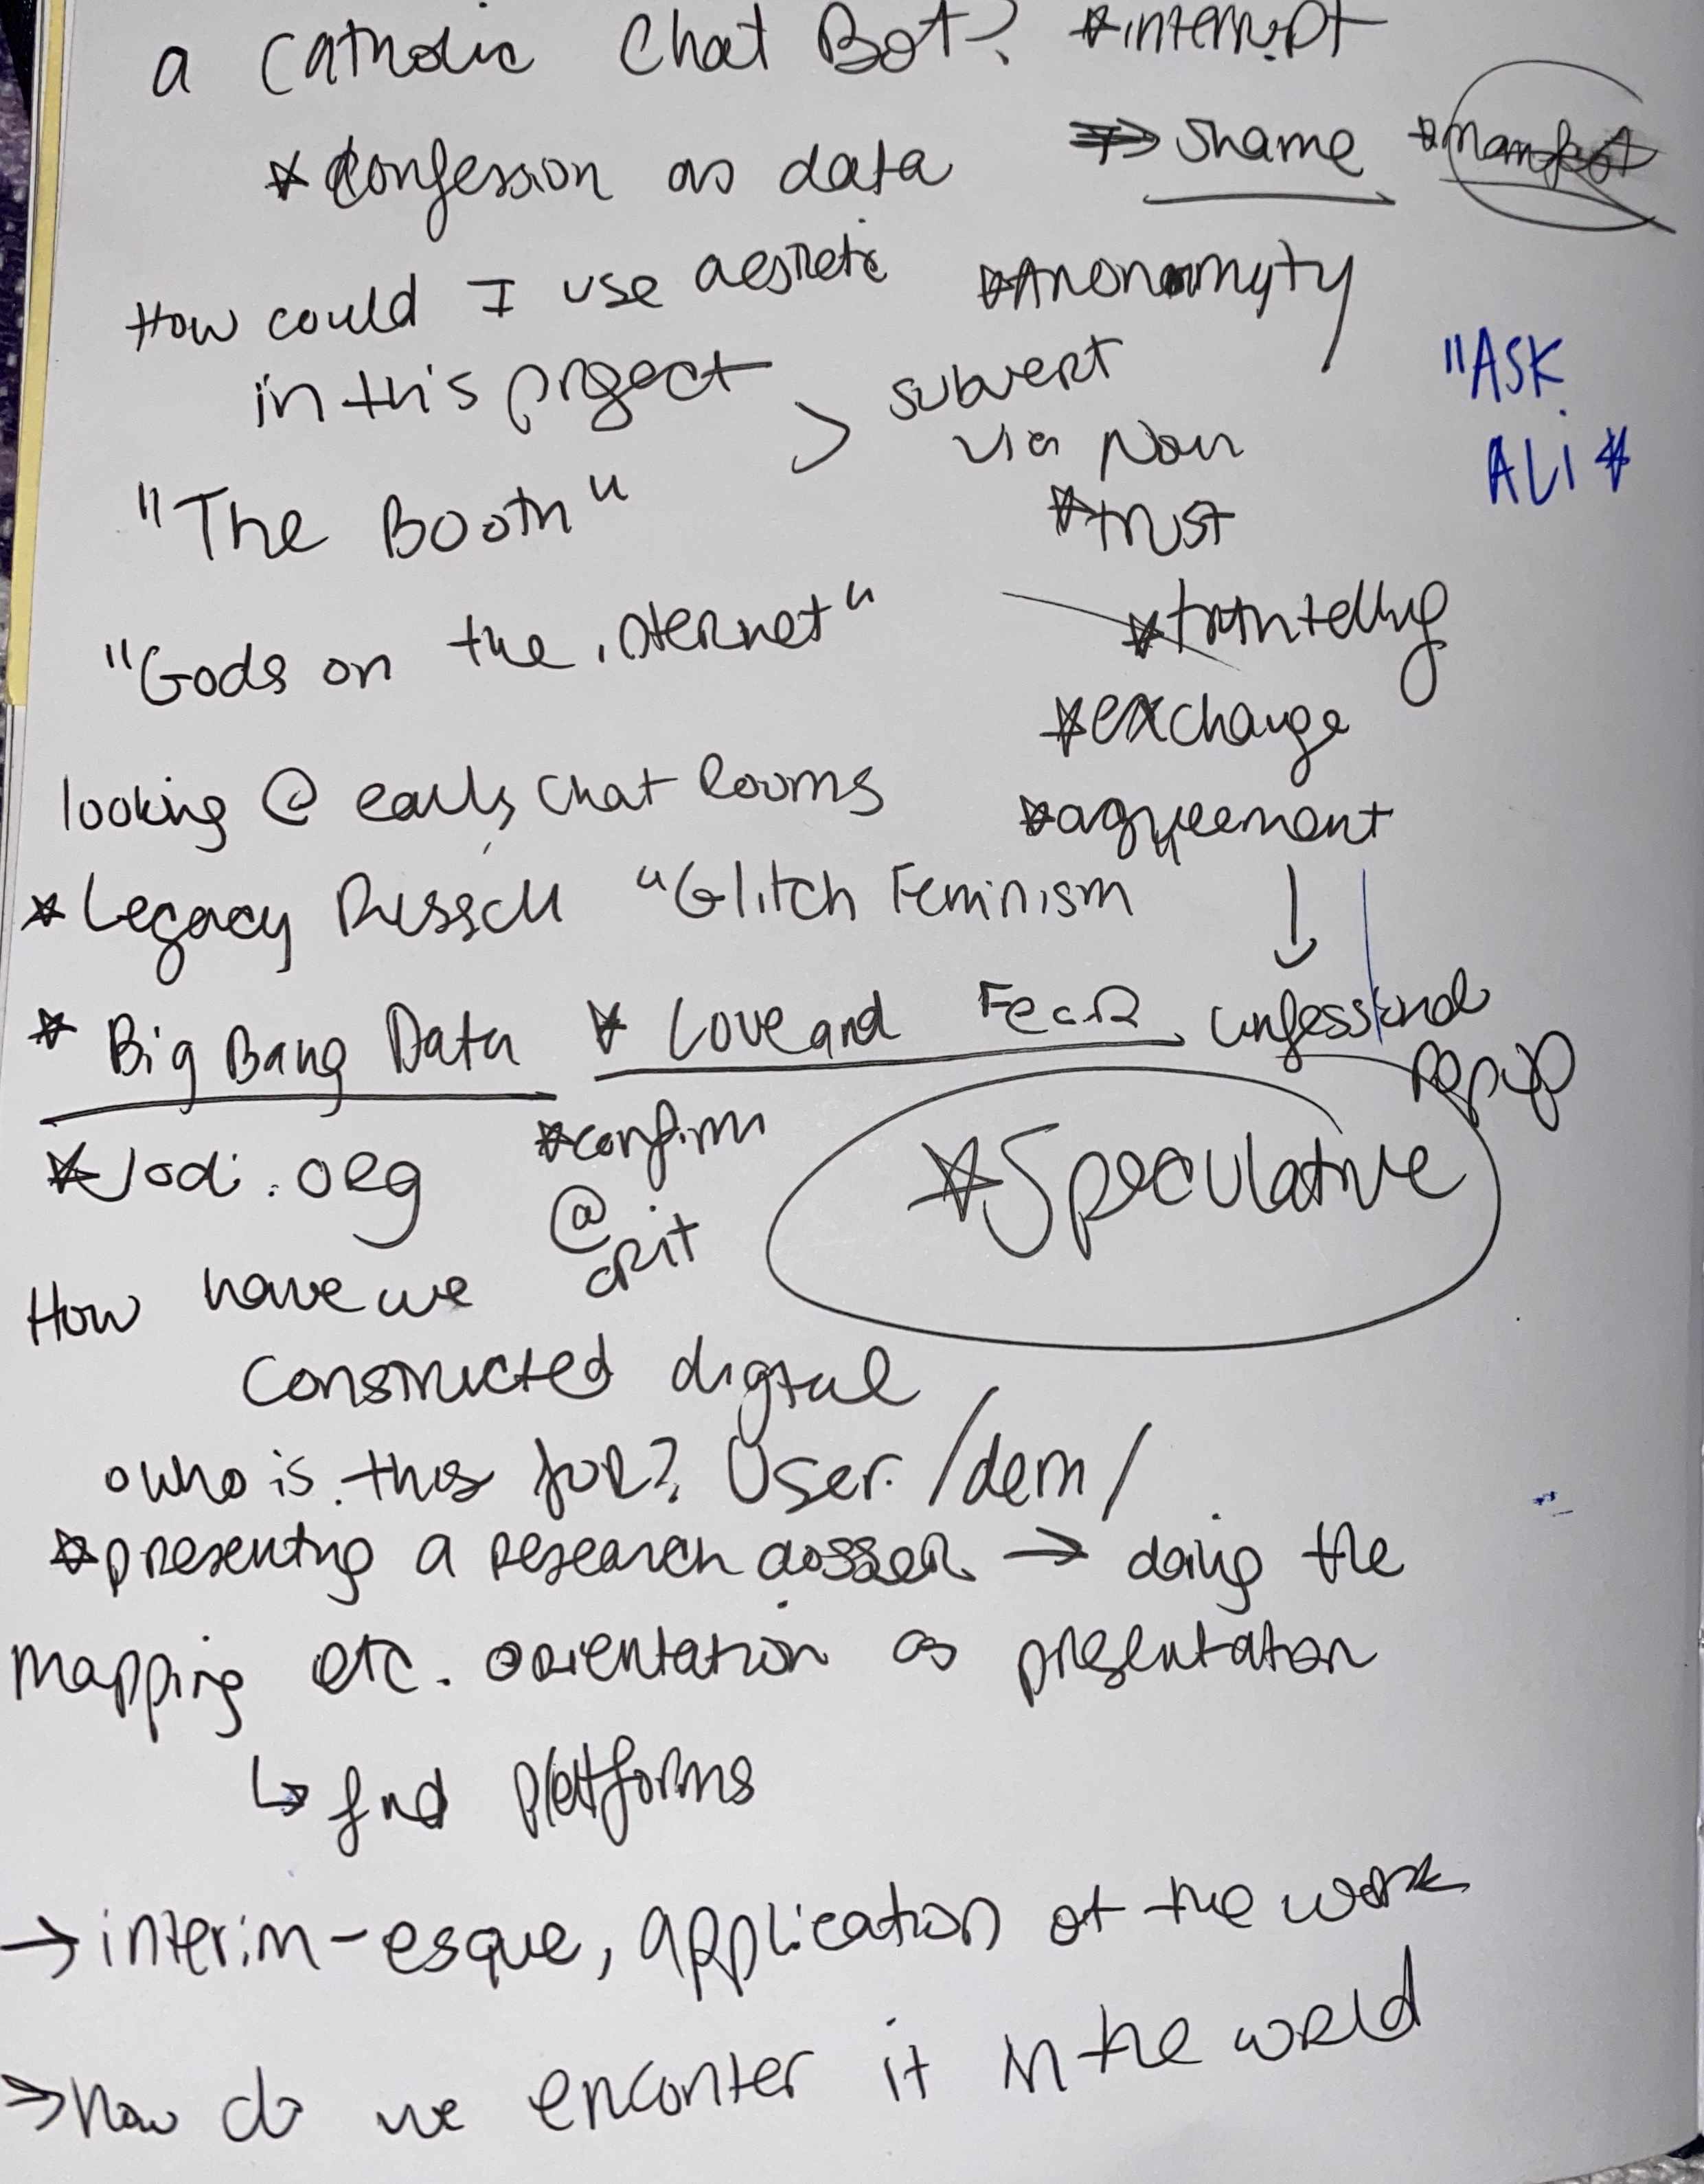 a Catholic Chat Bot? *interrupt
*Confession as data
⇒ Shame
How could I use aesthetic
in this project
*Anonomyty
> subvert
via
"ASK
ALi *
"The Booth"
*trust
*truthtelling
"Gods on the internet"
*exchange
looking @ early chat Rooms
*agreement
*Legacy Russell "Glitch Feminism
↓
* Big Bang Data
* Love and Fear
confessional
popup
*Jodi.org
*confirm
@
crit
*Speculative
How have we
constructed digital
o who is this for? User /dem/
*presenting a research dossier → doing the
mapping etc. orientation as presentation
↳ find platforms
→ interim-esque, application of the work
→ how do we enconter it in the world